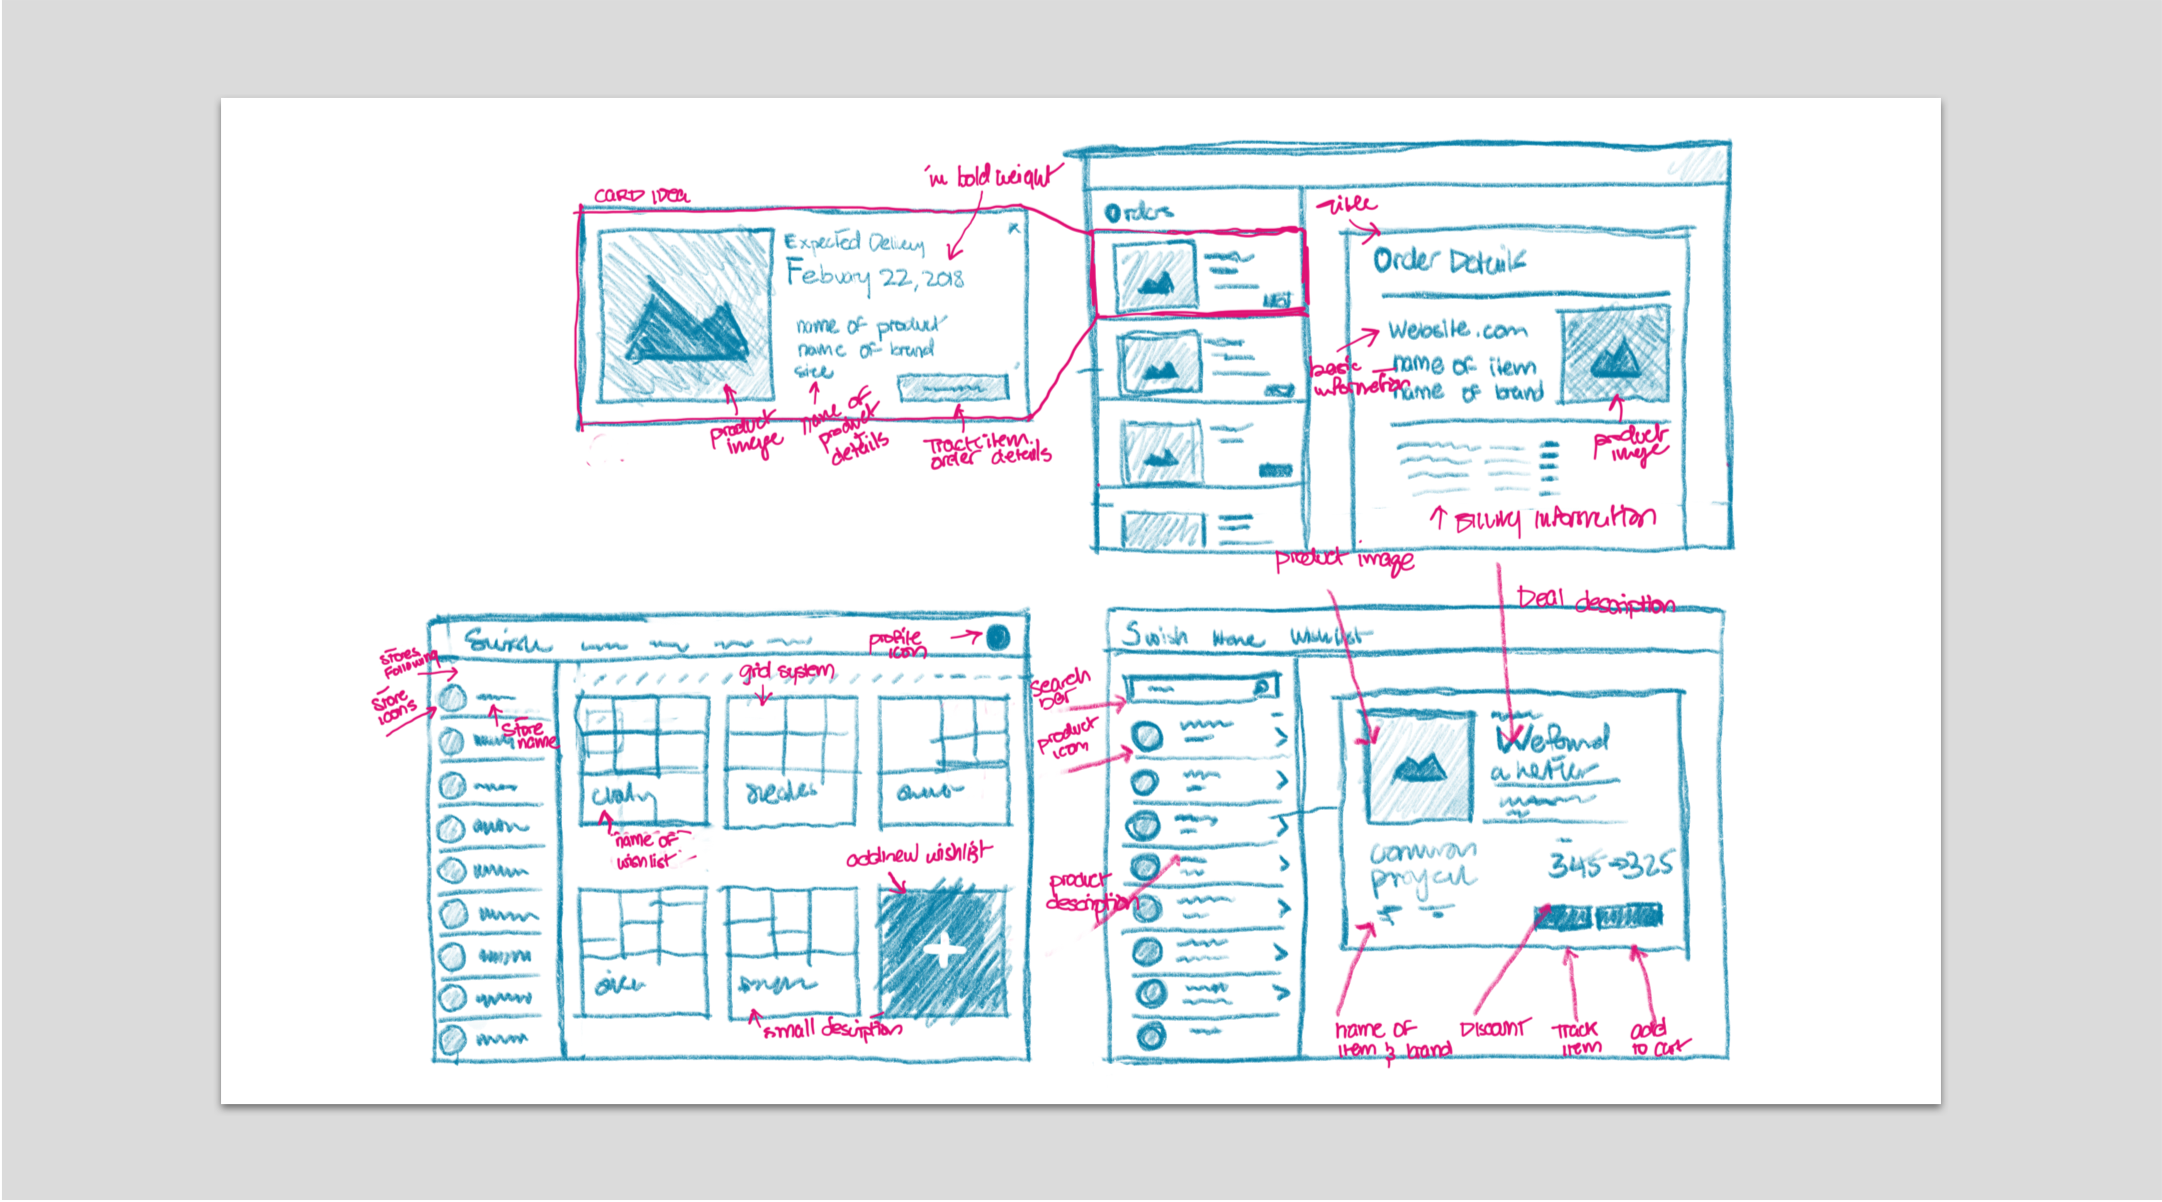 CARD IDEA
in bold weight
Expected Delivery
Febuary 22, 2018
name of product
name of brand
size
product
image
name of
product
details
Track item.
order details
Orders
Title
Order Details
Website.com
name of item
name of brand
basic
information
product
image
Billing Information
Swish
profile
icon
stores
Following
store
icons
store
name
grid system
name of
wishlist
add new wishlist
small desciption
product image
Deal description
Swish Home Wishlist
search
bar
product
icon
product
description
We found
a better
common
project
345 → 325
name of
item & brand
Discount
Track
item
add
to cart